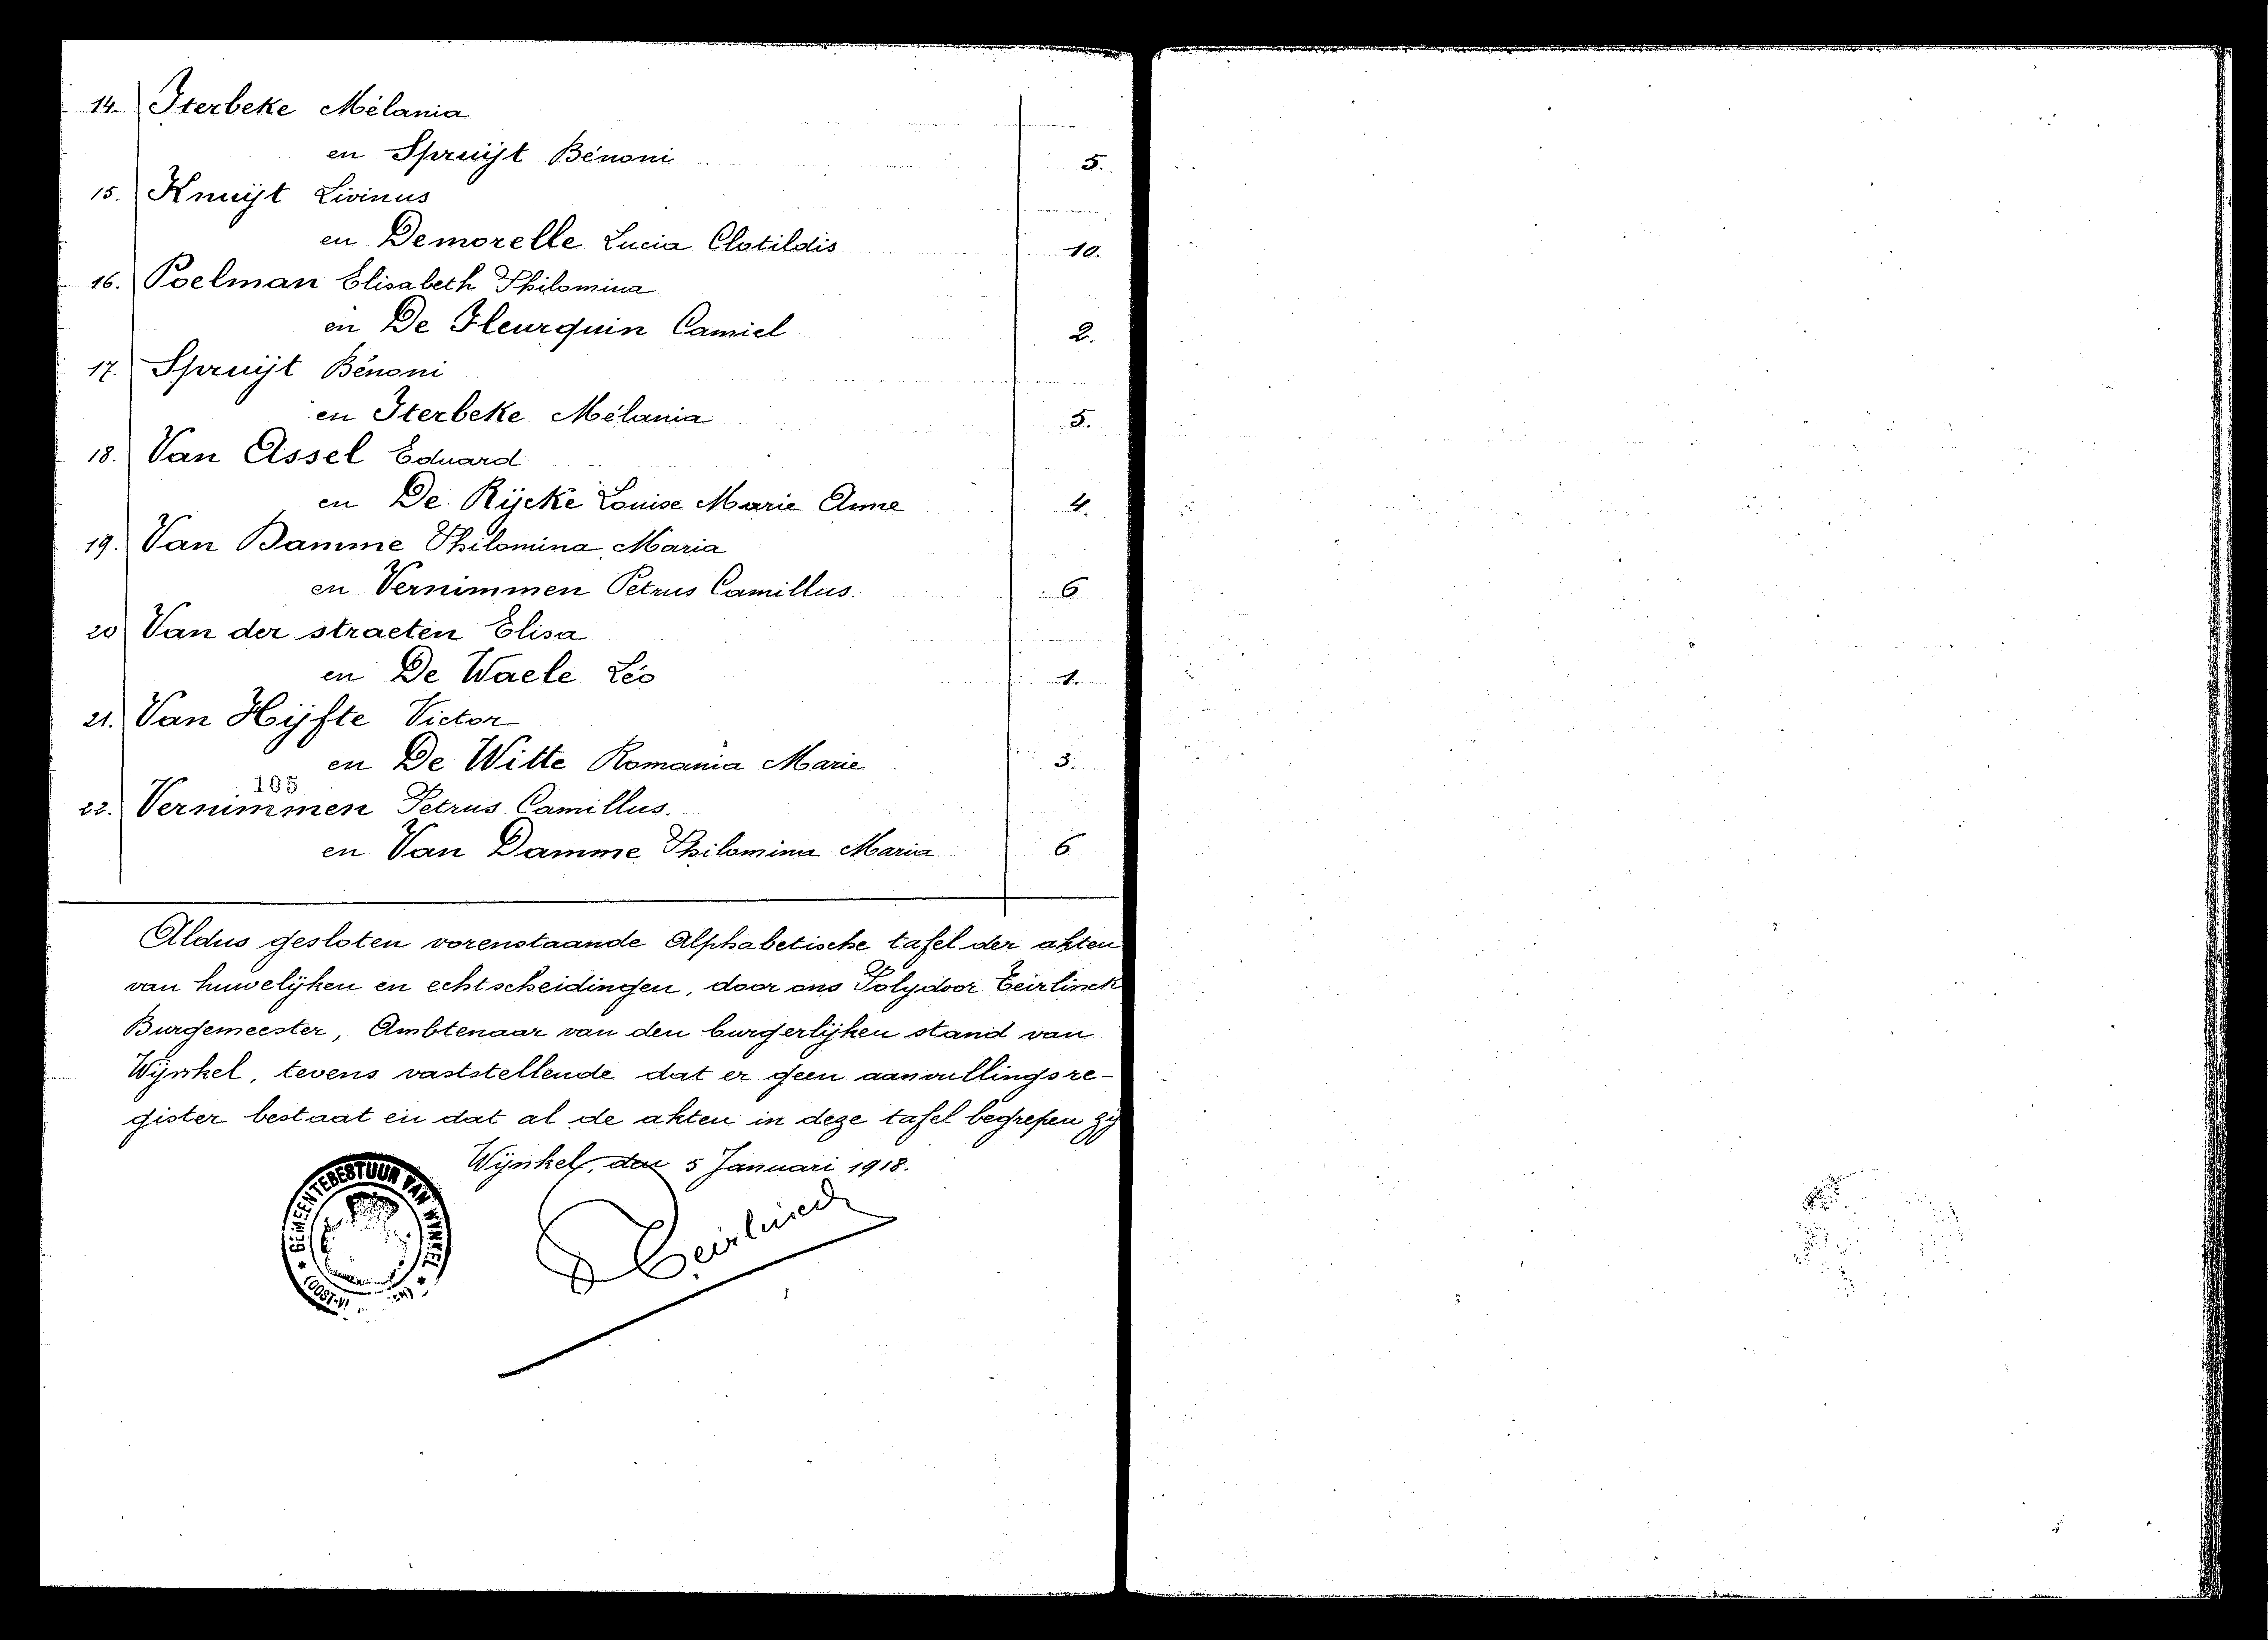 14. Iterbeke Mélania
en Spruijt Bénoni 5.
15. Knuijt Livinus
en Demorelle Lucia Clotildis 10.
16. Poelman Elisabeth Philomina
en De Fleurquin Camiel 2.
17. Spruijt Bénoni
en Iterbeke Mélania 5.
18. Van Assel Eduard
en De Rijcke Louise Marie Anne 4.
19. Van Damme Philomina Maria
en Vernimmen Petrus Camillus. 6
20 Van der straeten Elisa
en De Waele Léo 1.
21. Van Hijfte Victor
en De Witte Romania Marie 3.
105
22. Vernimmen Petrus Camillus.
en Van Damme Philomina Maria 6
Aldus gesloten vorenstaande Alphabetische tafel der akten
van huwelijken en echtscheidingen, door ons Polydoor Teirlinck
Burgemeester, Ambtenaar van den burgerlijken stand van
Wijnkel, tevens vaststellende dat er geen aanvullingsre-
gister bestaat en dat al de akten in deze tafel begrepen zij
Wijnkel, den 5 Januari 1918.
GEMEENTEBESTUUR VAN WYNKEL
(OOST-Vl
Teirlinck